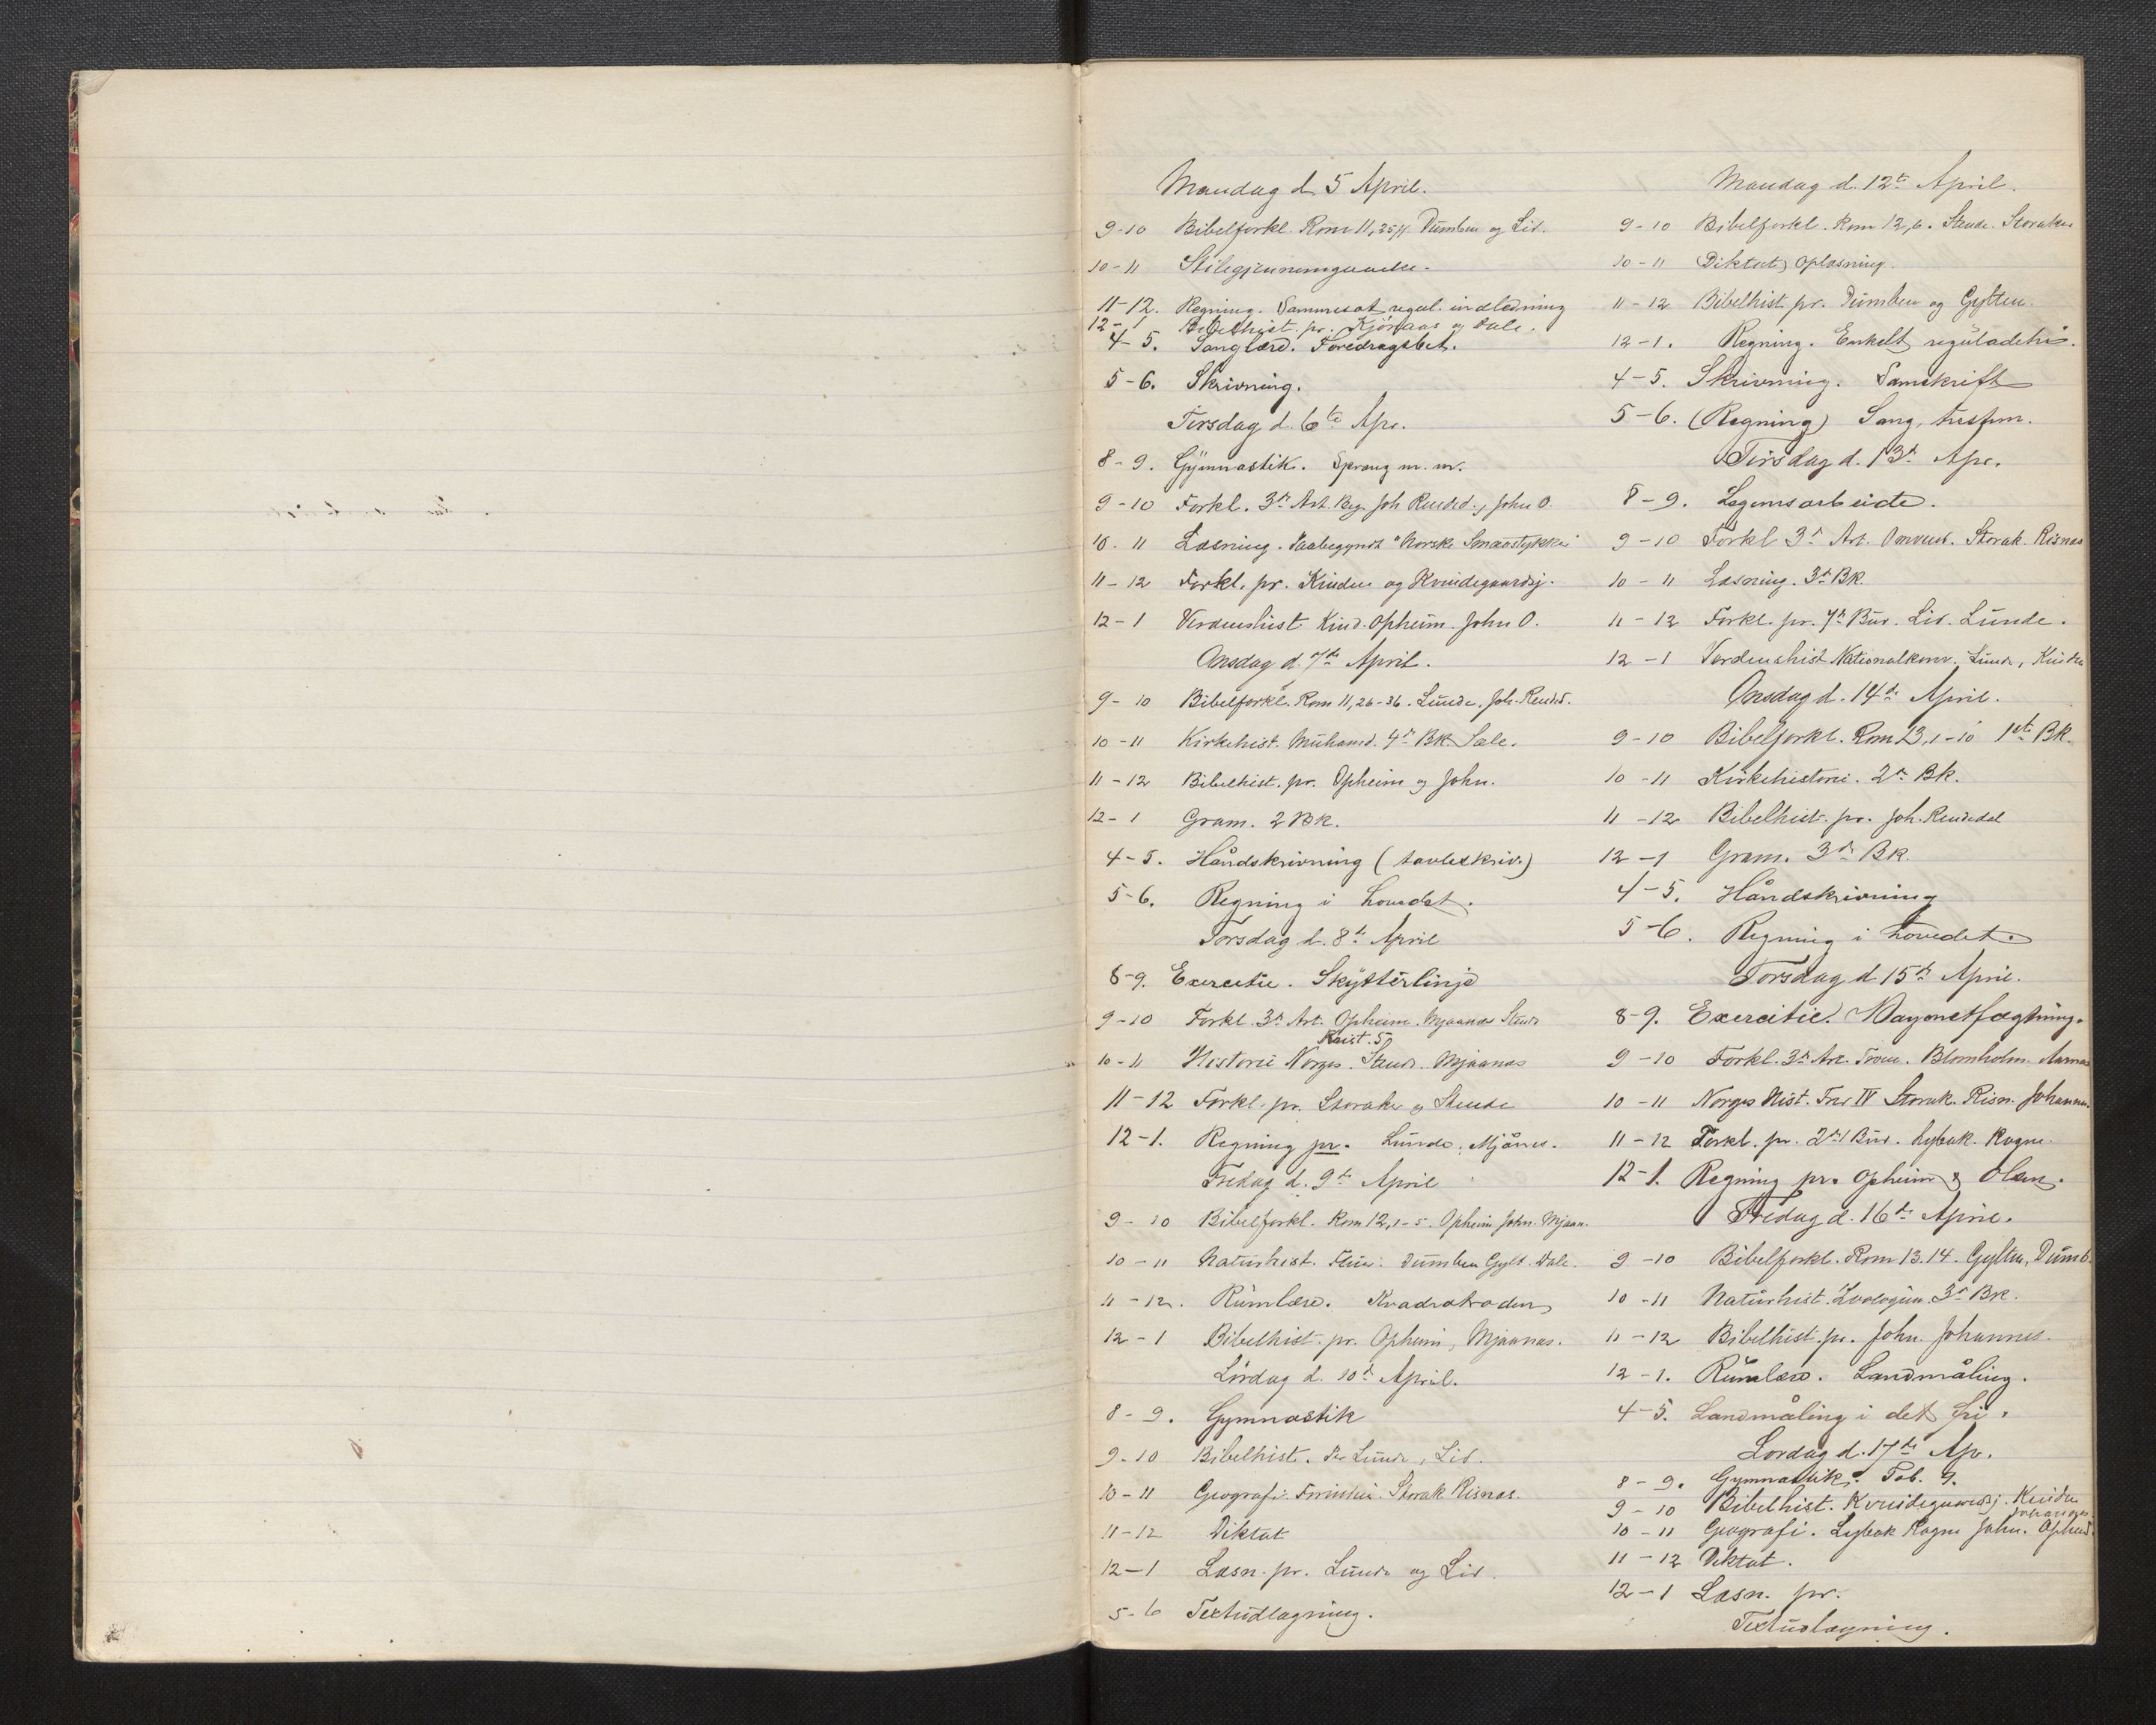 Mandag d. 5 April.
9-10 Bibelforkl. Rom 11,25ff Dümben og Lid.
10-11 Stilegjennemgaaelse.
11-12. Regning. Sammesat regul. indledning
12-1 Bibelhist. pr. Kjönaas og Dale.
4-5. Sanglære. Foredragsbet.
5-6. Skrivning.
Tirsdag d. 6te Apr.
8-9. Gÿmnastik. Sprang m. m.
9-10 Forkl. 3die Art. Beg. Joh Rended., John O.
10-11 Læsning. Paabegyndt "Norske Smaastykker"
11-12 Forkl. pr. Kinden og Kvindegaardsj.
12-1 Verdenshist. Kind. Opheim. John O.
Onsdag d. 7de April.
9-10 Bibelforkl. Rom 11,26-36. Lünde. Joh. Rended.
10-11 Kirkehist. Mühamd. 4de BK. Dale.
11-12 Bibelhist. pr. Opheim og John.
12-1 Gram. 2 BK.
4-5. Håndskrivning (tavleskriv.)
5-6. Regning i hovedet.
Torsdag d. 8de April
8-9. Exercitie. Skÿtterlinje
9-10 Forkl. 3die Art. Opheim. Mjaanes Stend
Krist. 5
10-11 Historie Norges. Stend. Mjaanas
11-12 Forkl. pr. Storaker og Stende
12-1. Regning pr. Lünde. Mjånes.
Fredag d. 9de April
9-10 Bibelforkl. Rom 12,1-5. Opheim John. Mjaan.
10-11 Natürhist. Dümben Gylt. Dale.
11-12. Rümlære. Kvadratroden
12-1 Bibelhist. pr. Opheim, Mjaanas.
Lördag d. 10de April.
8-9. Gymnastik
9-10 Bibelhist. Per Lünde, Lid.
10-11 Geografi. Storak Risnas.
11-12 Diktat
12-1 Læsn. pr. Lünde og Lid.
5-6 Textüdlægning.
Mandag d. 12te April.
9-10 Bibelforkl. Rom 12,6. Stende. Storaker
10-11 Diktat, Oplæsning.
11-12 Bibelhist. pr. Dümben og Gylten.
12-1. Regning. Enkelt regüladetri.
4-5. Skrivning. Samskrift
5-6. (Regning) Sang, trestem.
Tirsdag d. 13de Apr.
8-9. Legemsarbeide.
9-10 Forkl 3die Art. Omvend. Storak. Risnas
10-11 Læsning. 3die BK.
11-12 Forkl. pr. 7de Büd. Lid. Lünde.
12-1 Verdenshist Nationalkonv. Lünde, Kinden
Onsdag d. 14de April.
9-10 Bibelforkl. Rom 13,1-10 1ste BK.
10-11 Kirkehistorie. 2den BK.
11-12 Bibelhist. pr. Joh. Rendedal
12-1 Gram. 3die BK.
4-5. Håndskrivning
5-6. Regning i hovedet.
Torsdag d. 15de April.
8-9. Exercitie. Bayonetfægtning.
9-10 Forkl. 3die Art. Troen. Blomholm. Aarnas
10-11 Norges Hist. Fred IV Storak. Risn. Johannes.
11-12 Forkl. pr. 2det Büd. Lybæk. Rogne.
12-1. Regning pr. Opheim & Olsen.
Fredag d. 16de April.
9-10 Bibelforkl. Rom 13.14. Gylten, Dümb.
10-11 Natürhist. Zoologien. 3die BK.
11-12 Bibelhist. pr. John. Johannes.
12-1. Rümlære. Landmåling.
4-5. Landmåling i det fri.
Lördag d. 17de Apr.
8-9. Gymnastik. Tab. 9.
9-10 Bibelhist. Kvindegaardsj. Kinden
Johannes
10-11 Geografi. Lybæk Rogne John. Opheim
11-12 Diktat.
12-1 Læsn. pr.
Textüdlægning.